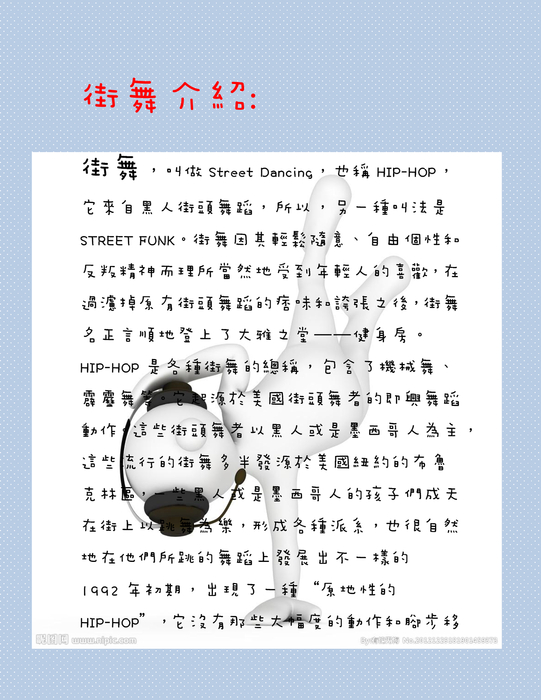 街舞介紹:
街舞，叫做 Street Dancing，也稱 HIP-HOP，
它來自黑人街頭舞蹈，所以，另一種叫法是
STREET FUNK。街舞因其輕鬆隨意、自由個性和
反叛精神而理所當然地受到年輕人的喜歡，在
過濾掉原有街頭舞蹈的痞味和誇張之後，街舞
名正言順地登上了大雅之堂——健身房。
HIP-HOP 是各種街舞的總稱，包含了機械舞、
霹靂舞等。它起源於美國街頭舞者的即興舞蹈
動作，這些街頭舞者以黑人或是墨西哥人為主，
這些流行的街舞多半發源於美國紐約的布魯
克林區，一些黑人或是墨西哥人的孩子們成天
在街上以跳舞為樂，形成各種派系，也很自然
地在他們所跳的舞蹈上發展出不一樣的
1992 年初期，出現了一種“原地性的
HIP-HOP”，它沒有那些大幅度的動作和腳步移
昵图网 www.nipic.com